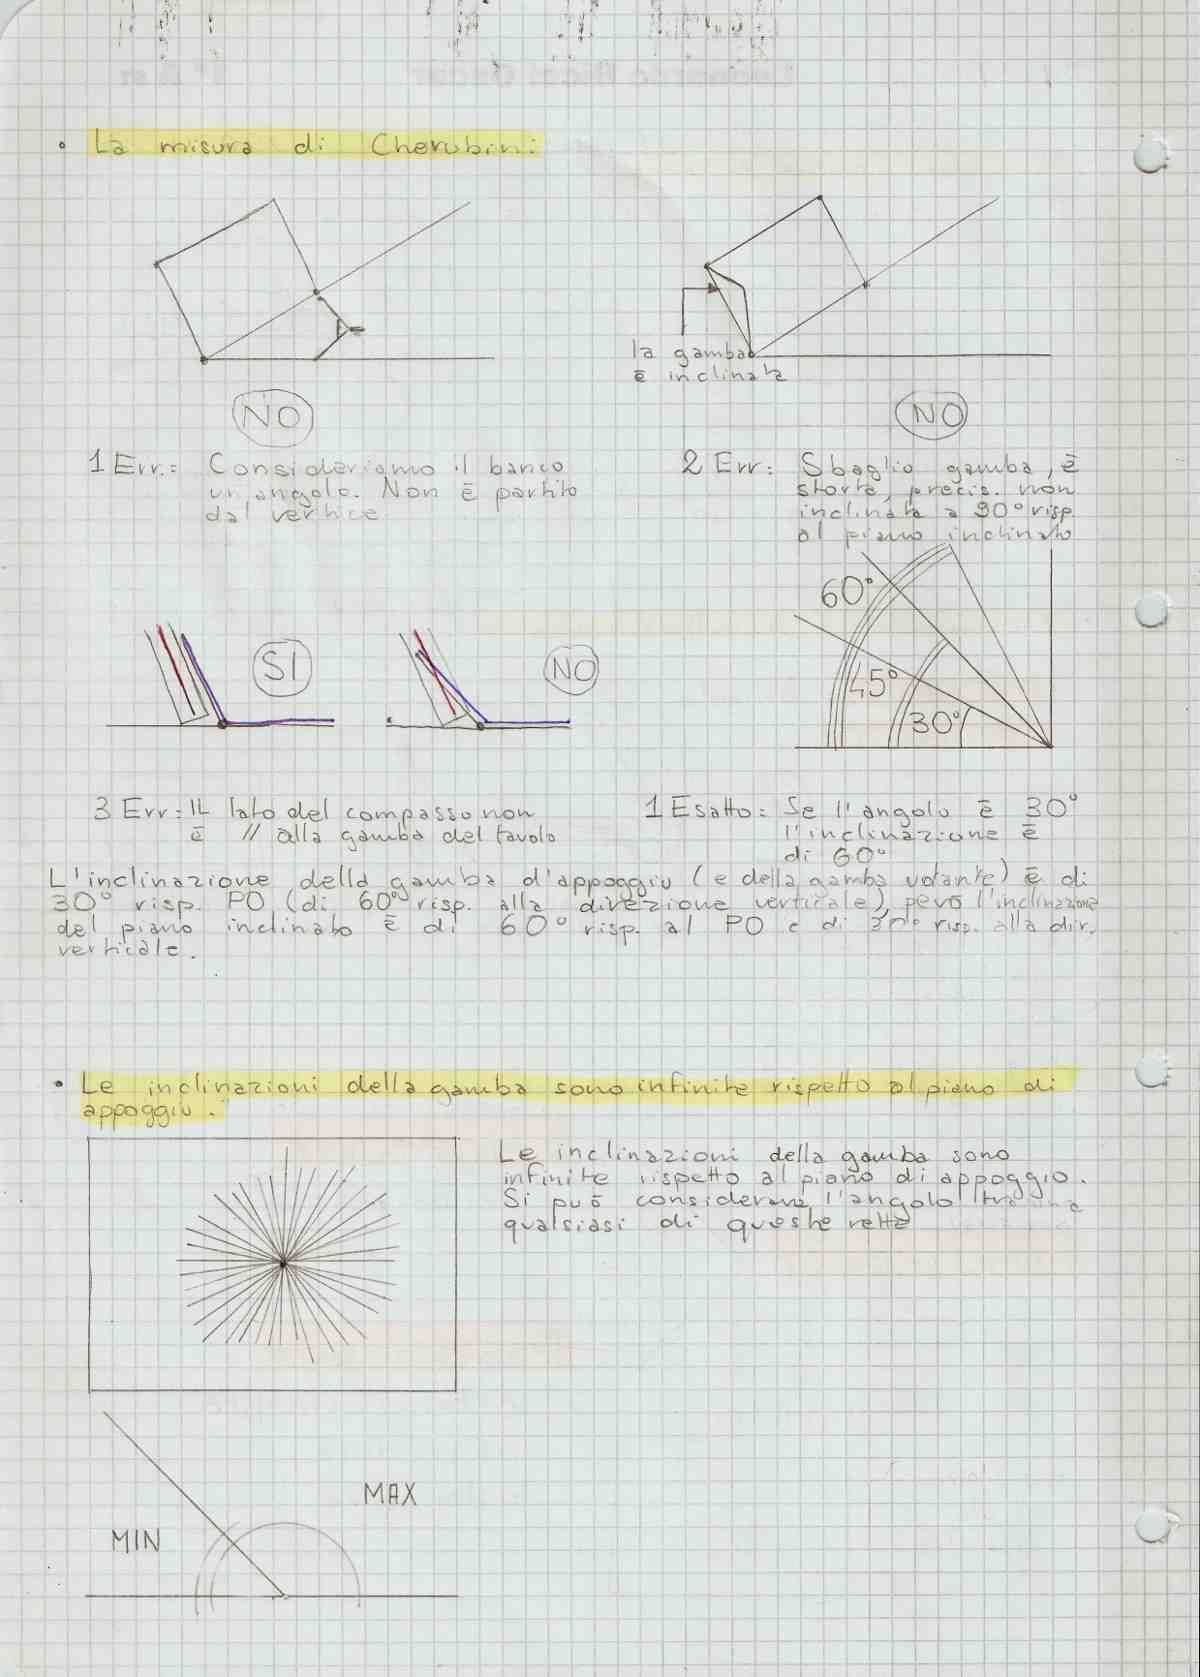 • La misura di Cherubini:
la gamba
è inclinata
NO
NO
1 Err.: Consideriamo il banco
un angolo. Non è partito
dal vertice
2 Err: Sbaglio gamba, è
storta, precis. non
inclinata a 90° risp
al piano inclinato
60°
45°
30°
SI
NO
3 Err: IL lato del compasso non
è // alla gamba del tavolo
1 Esatto: Se l'angolo è 30°
l'inclinazione è
di 60°
L'inclinazione della gamba d'appoggio (e della gamba votante) è di
30° risp. PO (di 60° risp. alla direzione verticale), però l'inclinazione
del piano inclinato è di 60° risp. al PO e di 30° risp. alla dir.
verticale.
• Le inclinazioni della gamba sono infinite rispetto al piano di
appoggio.
Le inclinazioni della gamba sono
infinite rispetto al piano di appoggio.
Si può considerare l'angolo tra
qualsiasi di queste rette
MAX
MIN